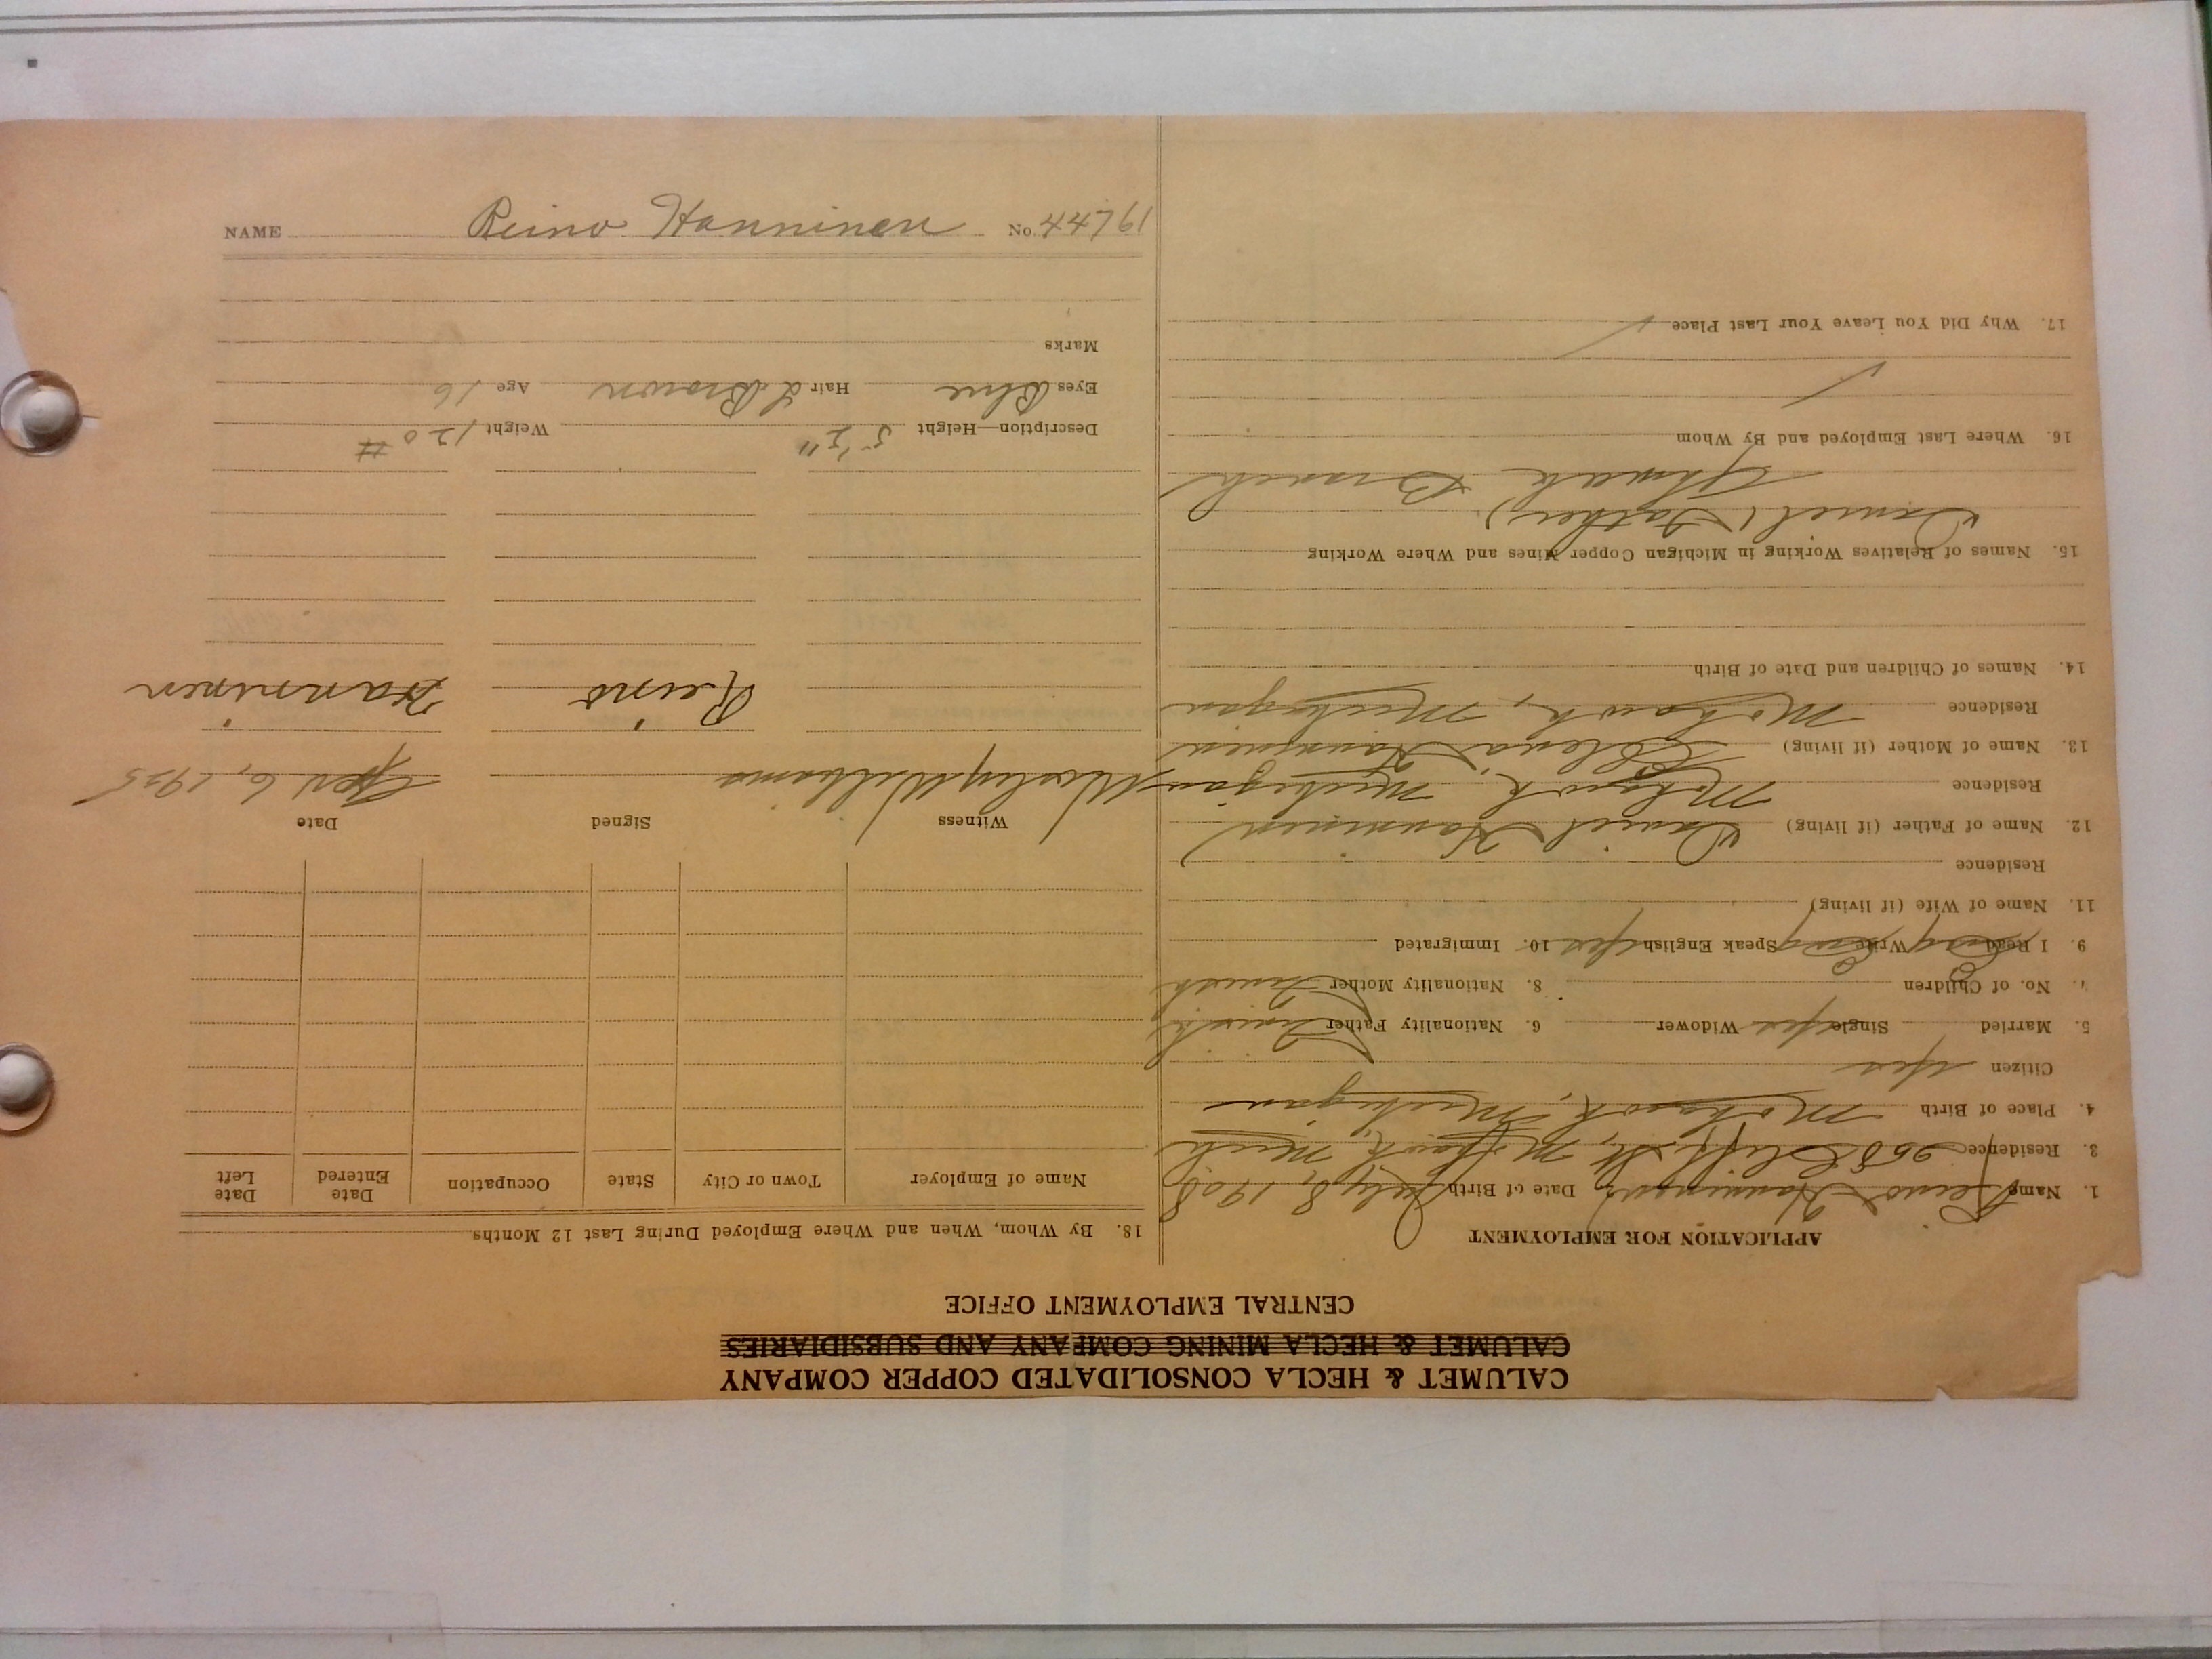 CALUMET & HECLA CONSOLIDATED COPPER COMPANY
CALUMET & HECLA MINING COMPANY AND SUBSIDIARIES
CENTRAL EMPLOYMENT OFFICE
APPLICATION FOR EMPLOYMENT
1. Name Reino Hanninen Date of Birth July 8, 1908
3. Residence 258 Cliff St, Mohawk, Mich
4. Place of Birth Mohawk, Michigan
Citizen Yes
5. Married Single Yes Widower 6. Nationality Father Finnish
7. No. of Children 8. Nationality Mother Finnish
9. I Read Eng Write Eng Speak English Yes 10. Immigrated
11. Name of Wife (if living)
Residence
12. Name of Father (if living) Daniel Hanninen
Residence Mohawk, Michigan
13. Name of Mother (if living) Hanninen
Residence Mohawk, Michigan
14. Names of Children and Date of Birth
15. Names of Relatives Working in Michigan Copper Mines and Where Working
Daniel (Father)
Ahmeek Branch
16. Where Last Employed and By Whom
17. Why Did You Leave Your Last Place
18. By Whom, When and Where Employed During Last 12 Months
Name of Employer Town or City State Occupation Date Entered Date Left
Witness Signed Date
Wesley Williams 6, 1925
Reino Hanninen
Description—Height 5' 2" Weight 120 #
Eyes Blue Hair L Brown Age 16
Marks
NAME Reino Hanninen No. 44761